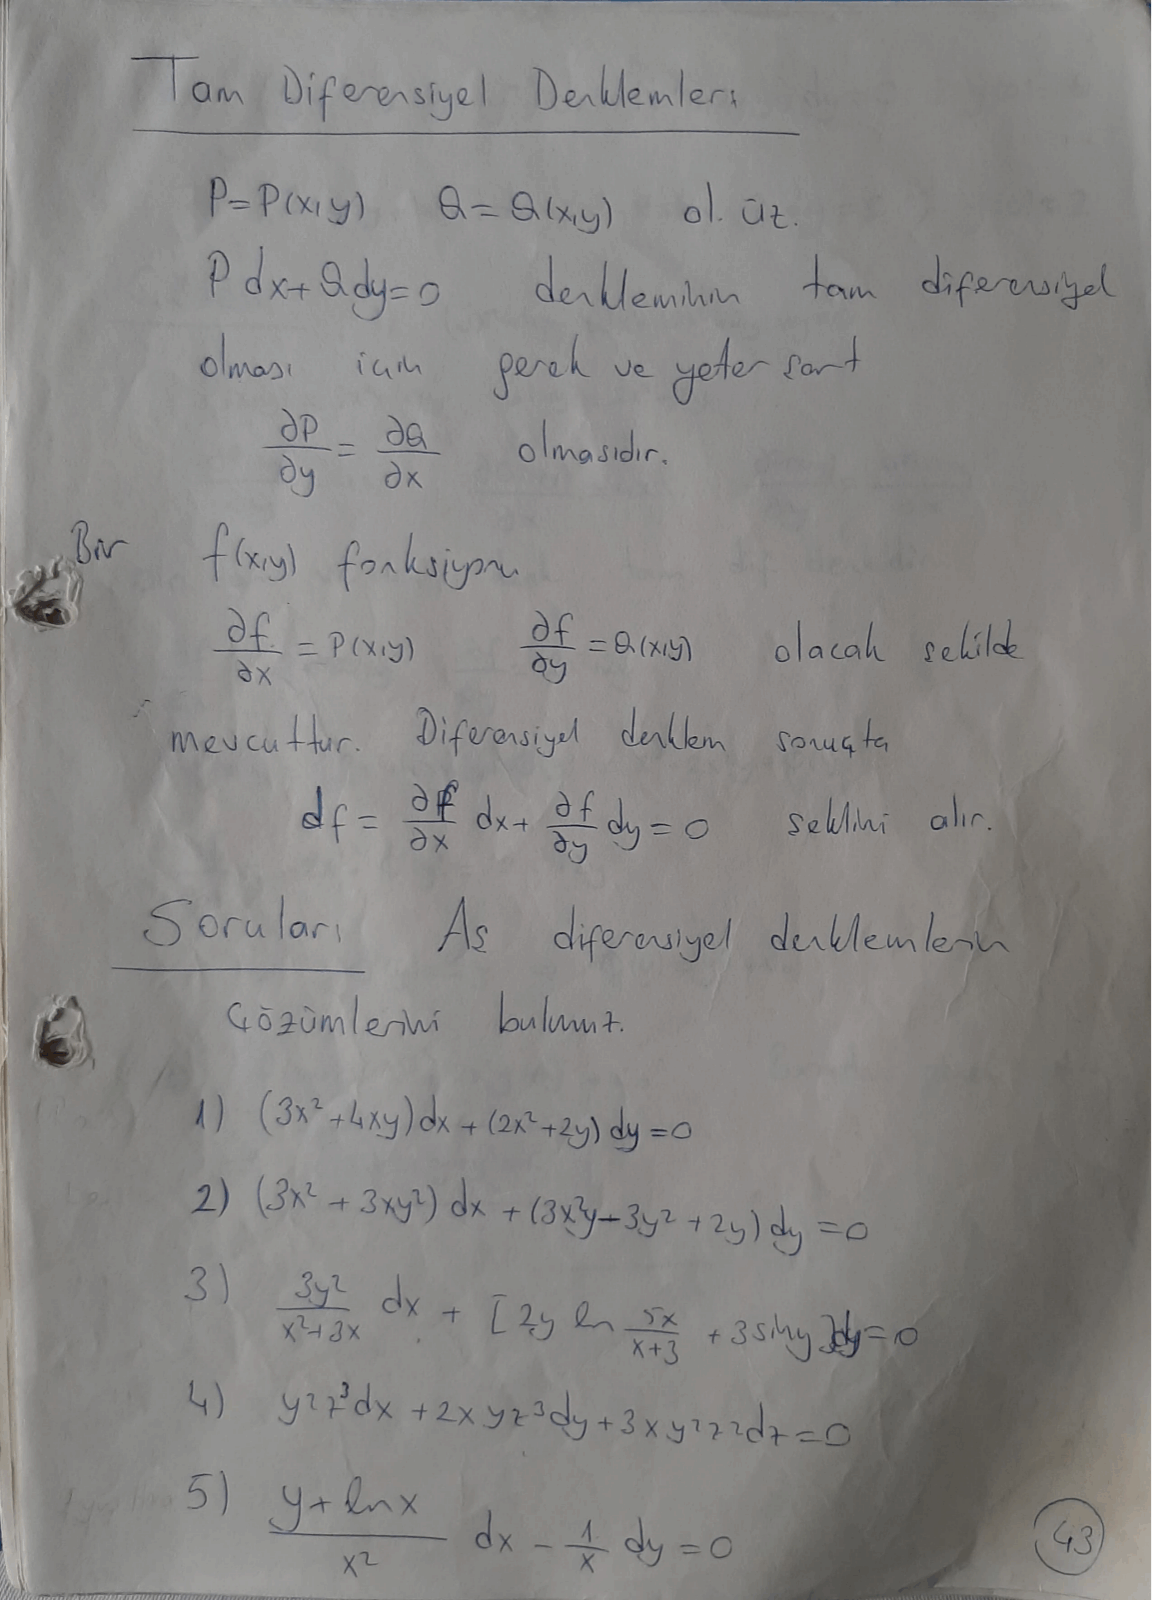 Tam Diferensiyel Denklemler:
P=P(x,y) Q=Q(x,y) ol. üz.
P dx+Qdy=0 denkleminin tam diferensiyel
olması için gerek ve yeter şart
∂P/∂y = ∂Q/∂x olmasıdır.
Bir f(x,y) fonksiyonu
∂f/∂x = P(x,y) ∂f/∂y = Q(x,y) olacak şekilde
mevcuttur. Diferensiyel denklem sonuçta
df = ∂f/∂x dx + ∂f/∂y dy = 0 şeklini alır.
Sorular: Aş diferensiyel denklemlerin
çözümlerini bulunuz.
1) (3x²+4xy)dx + (2x²+2y) dy = 0
2) (3x² + 3xy²) dx + (3x²y-3y²+2y) dy = 0
3) 3y²/(x²+3x) dx + [2y ln 5x/(x+3) + 3 siny]dy = 0
4) y²z³dx + 2xyz³dy + 3xy²z²dz = 0
5) (y+lnx)/x² dx - 1/x dy = 0
43